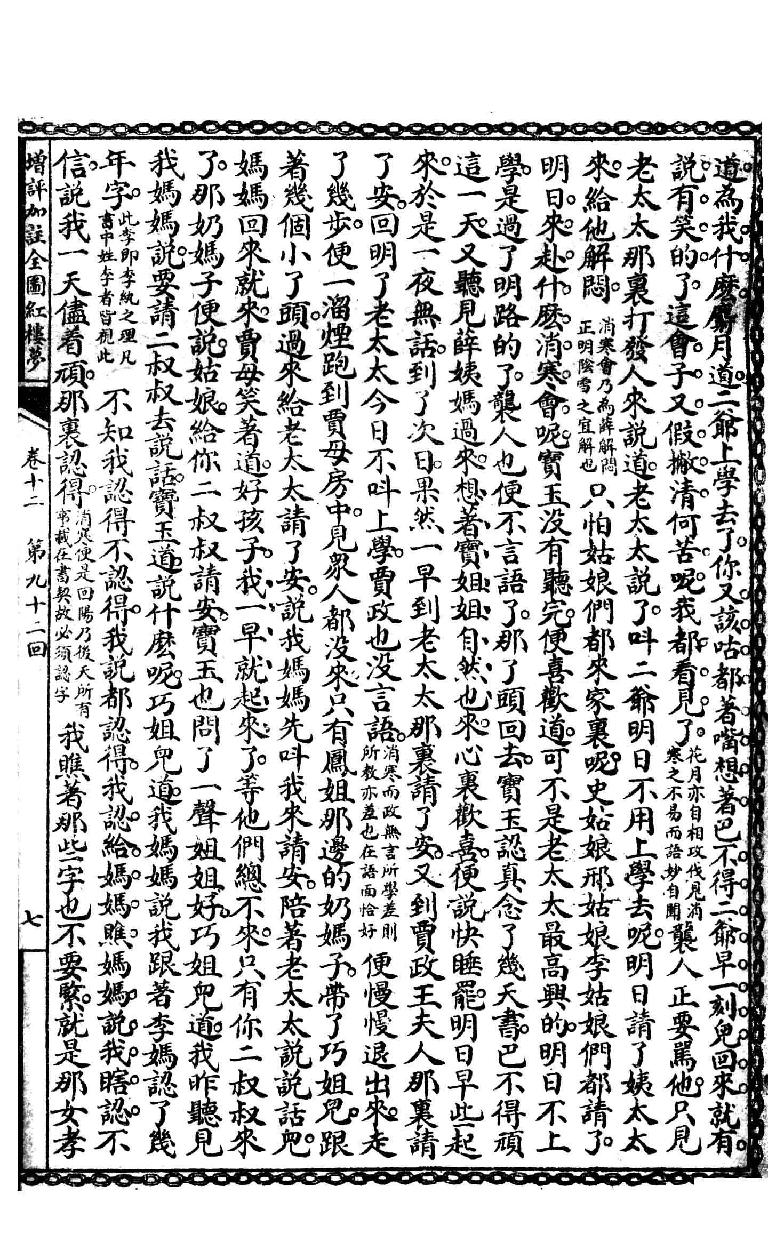 道為我什麽麝月道二爺上學去了你又該咕都著嘴想著巴不得二爺早一刻兒回來就有
說有笑的了這會子又假撇清何苦呢我都看見了花月亦自相攻伐見消寒之不易而語妙自聞襲人正要罵他只見
老太太那裏打發人來說道老太太說了呌二爺明日不用上學去呢明日請了姨太太
來給他解悶消寒會乃為薛解問正明陰雪之宜解也只怕姑娘們都來家裏呢史姑娘邢姑娘李姑娘們都請了
明日來赴什麽消寒會呢寶玉没有聽完便喜歡道可不是老太太最高興的明日不上
學是過了明路的了襲人也便不言語了那丫頭回去寶玉認真念了幾天書巴不得頑
這一天又聽見薛姨媽過來想著寶姐姐自然也來心裏歡喜便說快睡罷明日早些起
來於是一夜無話到了次日果然一早到老太太那裏請了安又到賈政王夫人那裏請
了安回明了老太太今日不呌上學賈政也没言語消寒而政無言所學差則所教亦差也在語面恰好便慢慢退出來走
了幾步便一溜煙跑到賈母房中見衆人都没來只有鳳姐那邊的奶媽子帶了巧姐兒跟
著幾個小丫頭過來給老太太請了安說我媽媽先呌我來請安陪著老太太說說話兒
媽媽回來就來賈母笑著道好孩子我一早就起來了等他們總不來只有你二叔叔來
了那奶媽子便說姑娘給你二叔叔請安寶玉也問了一聲妞妞好巧姐兒道我昨聽見
我媽媽說要請二叔叔去說話寶玉道說什麽呢巧姐兒道我媽媽說我跟著李媽認了幾
年字此李即李紈之理凡書中姓李者皆視此不知我認得不認得我說都認得我認給媽媽瞧媽媽說我瞎認不
信說我一天儘着頑那裏認得消寒便是回陽乃後天所有事載在書契故必須認字我瞧著那些字也不要緊就是那女孝
增評加註全圖紅樓夢 卷十二 第九十二回 七